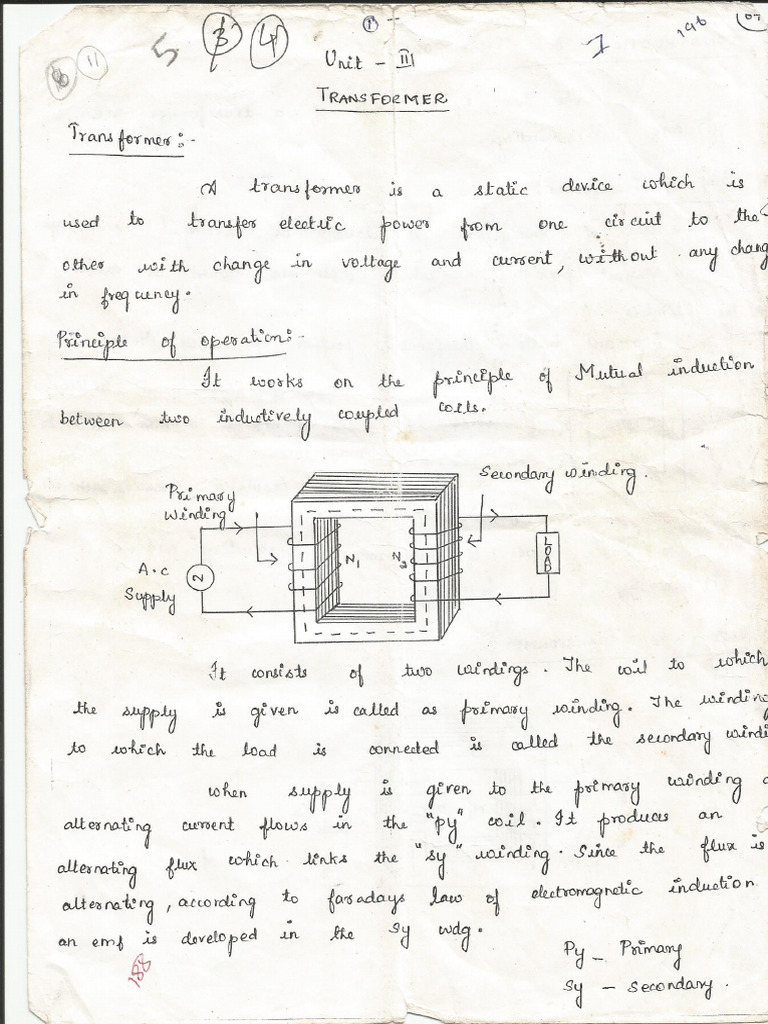 1
64
196
11
5
3
4
1
Unit - III
TRANSFORMER
Transformer:-
A transformer is a static device which is
used to transfer electric power from one circuit to the
other with change in voltage and current, without any chang
in frequency.
Principle of operation:-
It works on the principle of Mutual induction
between two inductively coupled coils.
Primary
winding
Secondary winding.
A.c
Supply
N1
N2
LOAD
It consists of two windings. The coil to which
the supply is given is called as primary winding. The winding
to which the load is connected is called the secondary windi
when supply is given to the primary winding a
alternating current flows in the "py" coil. It produces an
alternating flux which links the "sy" winding. Since the flux is
alternating, according to faradays law of electromagnetic induction
an emf is developed in the Sy wdg.
Py - Primary
Sy - Secondary.
188